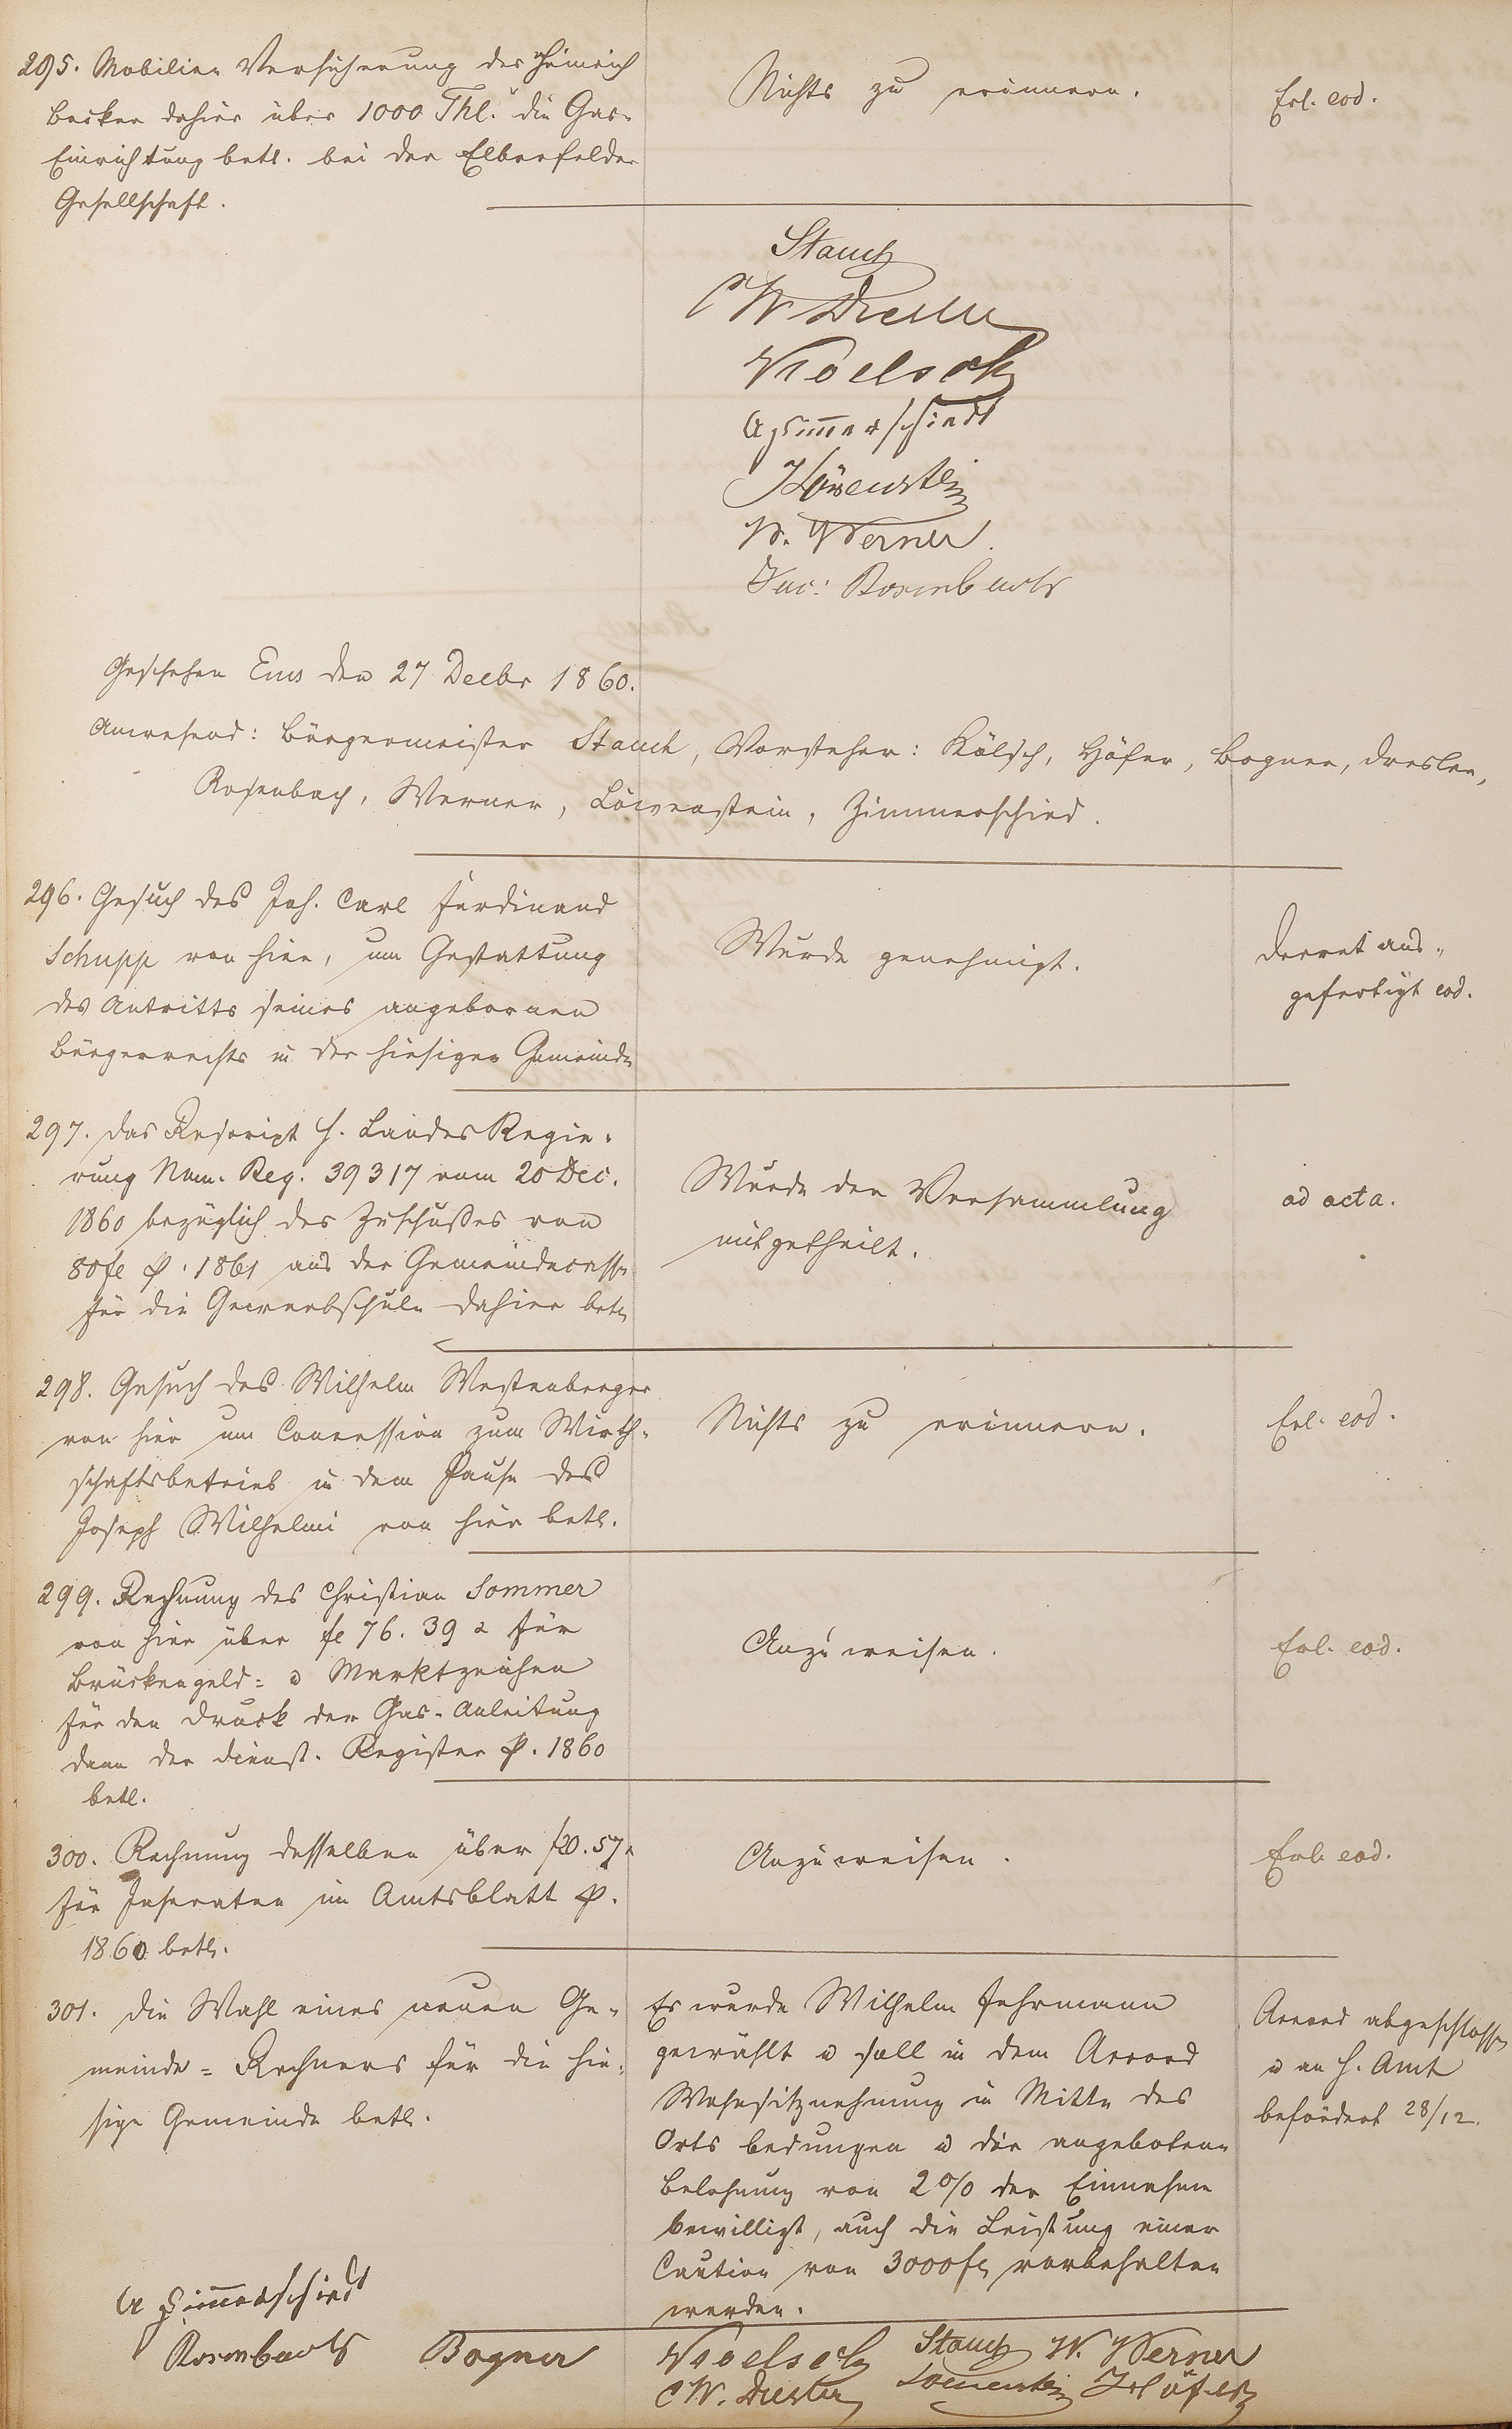 295. Mobilien Versicherung des Heinrich
Becker dahier über 1000 Thl. die Gas-
Einrichtung betl. bei der Elberfelder
Gesellschaft.
Nichts zu erinnern.
Erl. eod.
Stauch
CW Diesler
A Zimmerschiedt
Löwenstein
W. Werner.
Jac: Rosenbach
Geschehen Ems den 27 Decbr 1860.
Anwesend: Bürgermeister Stauch, Vorsteher: Kölsch, Höfer, Bogner, Dresler,
Rosenbach, Werner, Löwenstein, Zimmerschied.
296. Gesuch des Joh. Carl Ferdinand
Schupp von hier, um Gestattung
des Antritts seines angebornen
Bürgerrechts in der hiesigen Gemeinde
Wurde genehmigt.
Decret aus-
gefertigt eod.
297. Das Rescript H. Landes Regie-
rung Num. Reg. 39317 vom 20 Dec.
1860 bezüglich des Zuschußes von
80 fl p. 1861 aus der Gemeindecasse
für die Gewerbschule dahier betl.
Wurde der Versammlung
mitgetheilt.
ad acta.
298. Gesuch des Wilhelm Westenberger
von hier um Concession zum Wirth-
schaftsbetrieb in dem Hause des
Joseph Wilhelmi von hier betl.
Nichts zu erinnern.
Erl. eod.
299. Rechnung des Christian Sommer
von hier über fl 76. 39 x für
Brückengeld- u Marktzeichen
für den Druck der Gas-Anleitung
dann der Dienst. Register p. 1860
betl.
Anzuweisen.
Erl. eod.
300. Rechnung desselben über f 20. 57 x
für Inseraten im Amtsblatt p.
1860 betl.
Anzuweisen.
Erl. eod.
301. Die Wahl eines neuen Ge-
meinde-Rechners für die hie-
sige Gemeinde betl.
Es wurde Wilhelm Fuhrmann
gewählt u soll in dem Accord
Wohnsitznehmung in Mitte des
Orts bedungen u die angebotene
Belohnung von 2% der Einnahme
bewilligt, auch die Leistung einer
Caution von 3000 fl vorbehalten
werden.
Accord abgeschlossen
u an H. Amt
befördert 28/12.
A Zimmerschiedt
Rosenbach Bogner Stauch W. Werner
CW. Diesler Löwenstein Höfer